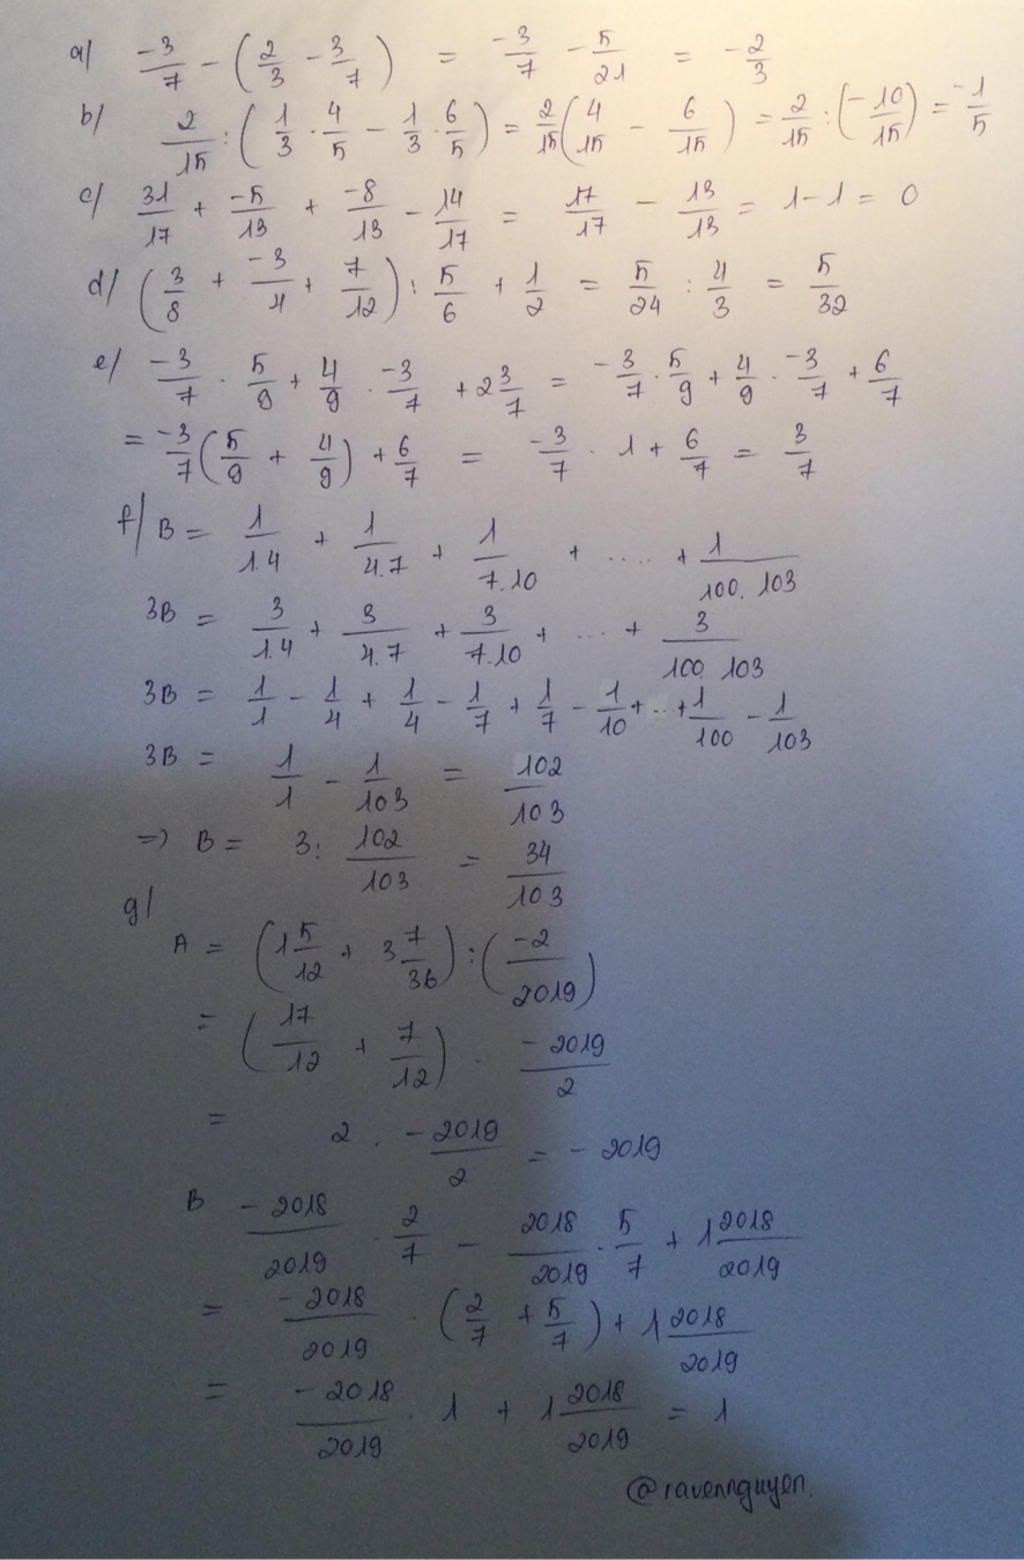 a/ -3/7 - (2/3 - 3/7) = -3/7 - 5/21 = -2/3
b/ 2/15 : (1/3 . 4/5 - 1/3 . 6/5) = 2/15 (4/15 - 6/15) = 2/15 : (-10/15) = -1/5
c/ 31/17 + -5/13 + -8/13 - 14/17 = 17/17 - 13/13 = 1 - 1 = 0
d/ (3/8 + -3/4 + 7/12) : 5/6 + 1/2 = 5/24 : 4/3 = 5/32
e/ -3/7 . 5/9 + 4/9 . -3/7 + 2 3/7 = -3/7 . 5/9 + 4/9 . -3/7 + 6/7
= -3/7 (5/9 + 4/9) + 6/7 = -3/7 . 1 + 6/7 = 3/7
f/ B = 1/1.4 + 1/4.7 + 1/7.10 + .... + 1/100.103
3B = 3/1.4 + 3/4.7 + 3/7.10 + ... + 3/100.103
3B = 1/1 - 1/4 + 1/4 - 1/7 + 1/7 - 1/10 + ... + 1/100 - 1/103
3B = 1/1 - 1/103 = 102/103
=> B = 3 : 102/103 = 34/103
g/
A = (1 5/12 + 3 7/36) : (-2/2019)
= (17/12 + 7/12) . -2019/2
= 2 . -2019/2 = -2019
B -2018/2019 . 2/7 - 2018/2019 . 5/7 + 1 2018/2019
= -2018/2019 . (2/7 + 5/7) + 1 2018/2019
= -2018/2019 . 1 + 1 2018/2019 = 1
@ravennguyen.